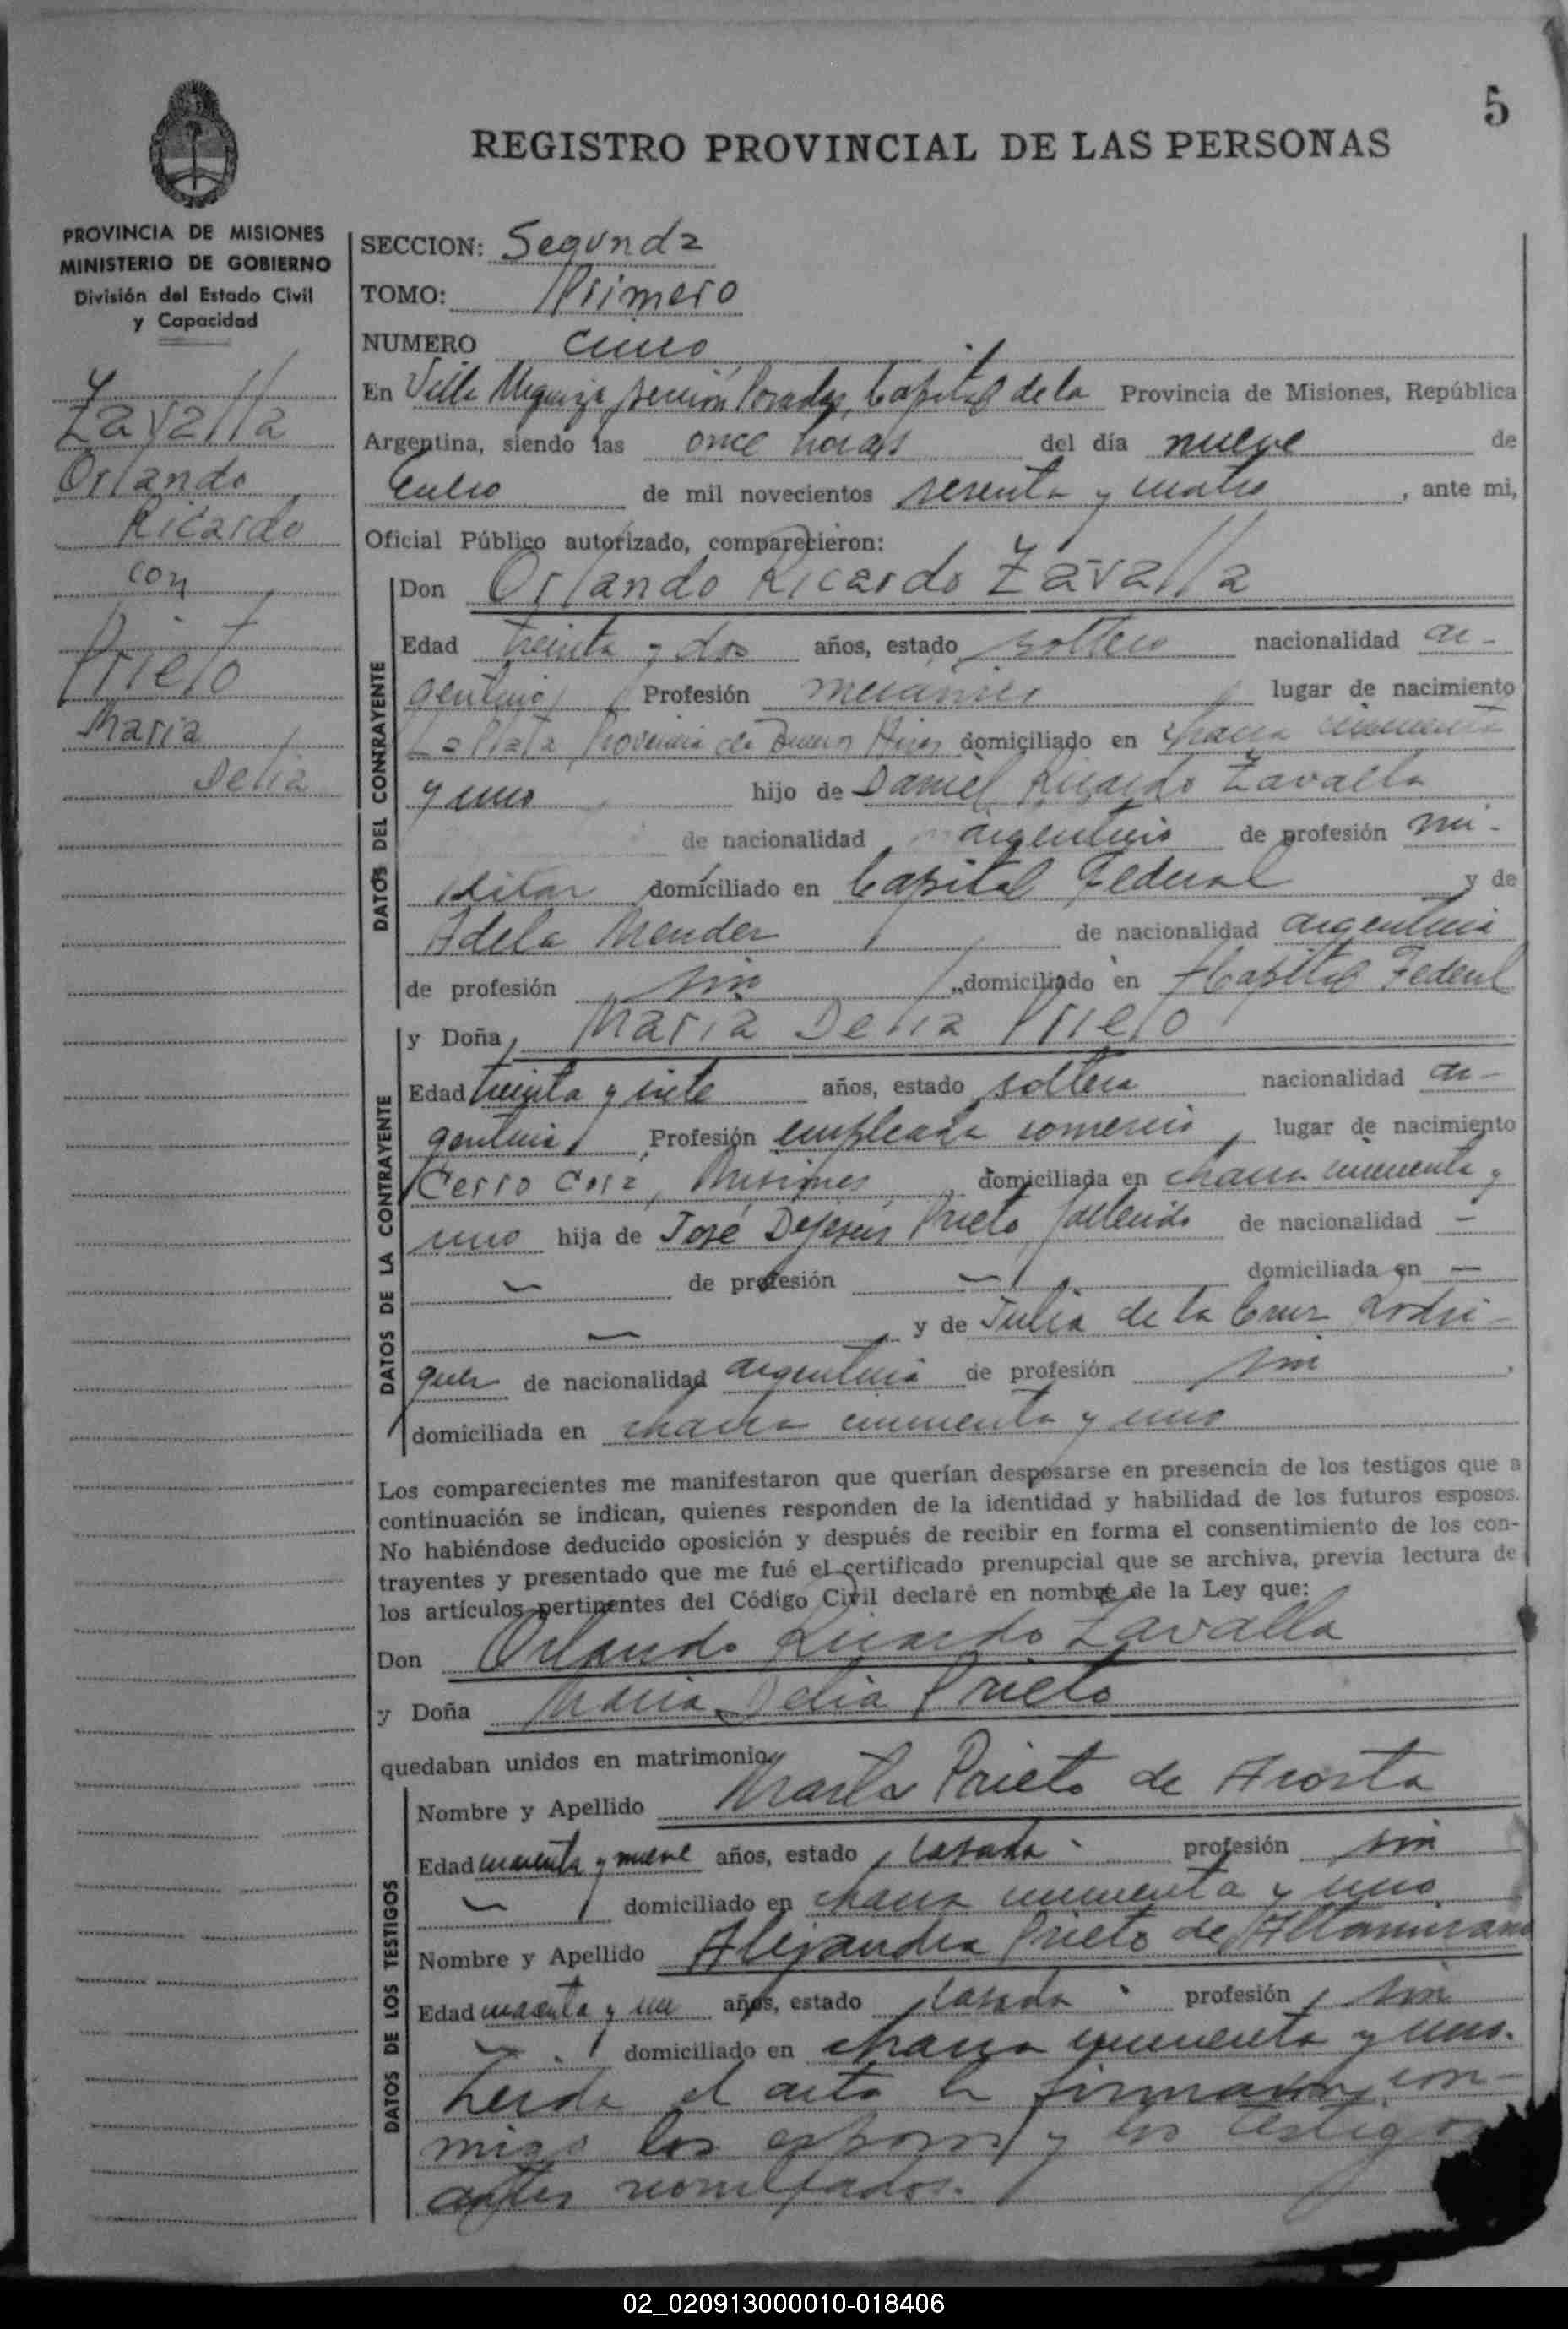 5
REGISTRO PROVINCIAL DE LAS PERSONAS
PROVINCIA DE MISIONES
MINISTERIO DE GOBIERNO
División del Estado Civil
y Capacidad
Zavalla
Orlando
Ricardo
con
Prieto
Maria
Delia
SECCION: Segunda
TOMO: Primero
NUMERO cinco
En Villa Urquiza sección Posadas, Capital de la Provincia de Misiones, República
Argentina, siendo las once horas del día nueve de
Enero de mil novecientos sesenta y cuatro, ante mi,
Oficial Público autorizado, comparecieron:
DATOS DEL CONRAYENTE
Don Orlando Ricardo Zavalla
Edad treinta y dos años, estado soltero nacionalidad ar-
gentino Profesión mecánico lugar de nacimiento
La Plata Provincia de Buenos Aires domiciliado en chacra cincuenta
y uno hijo de Daniel Ricardo Zavalla
de nacionalidad argentino de profesión mi-
litar domiciliado en Capital Federal y de
Adela Mendez de nacionalidad argentina
de profesión sin domiciliado en Capital Federal
DATOS DE LA CONTRAYENTE
y Doña Maria Delia Prieto
Edad treinta y siete años, estado soltera nacionalidad ar-
gentina Profesión empleada comercio, lugar de nacimiento
Cerro Corá, Misiones domiciliada en chacra cincuenta y
uno hija de José DeJesús Prieto fallecido de nacionalidad —
— de profesión — domiciliada en —
— y de Julia de la Cruz Rodri-
guez de nacionalidad argentina de profesión sin
domiciliada en chacra cincuenta y uno
Los comparecientes me manifestaron que querían desposarse en presencia de los testigos que a
continuación se indican, quienes responden de la identidad y habilidad de los futuros esposos.
No habiéndose deducido oposición y después de recibir en forma el consentimiento de los con-
trayentes y presentado que me fué el certificado prenupcial que se archiva, previa lectura de
los artículos pertinentes del Código Civil declaré en nombre de la Ley que:
Don Orlando Ricardo Zavalla
y Doña Maria Delia Prieto
quedaban unidos en matrimonio
DATOS DE LOS TESTIGOS
Nombre y Apellido Marta Prieto de Acosta
Edad cuarenta y nueve años, estado casada profesión sin
— domiciliado en chacra cincuenta y uno
Nombre y Apellido Alejandra Prieto de Altamirano
Edad cuarenta y un años, estado casada profesión sin
— domiciliado en chacra cincuenta y uno.
Leida el acta la firmaron con-
migo los esposos y los testigos
antes nombrados.
02_020913000010-018406